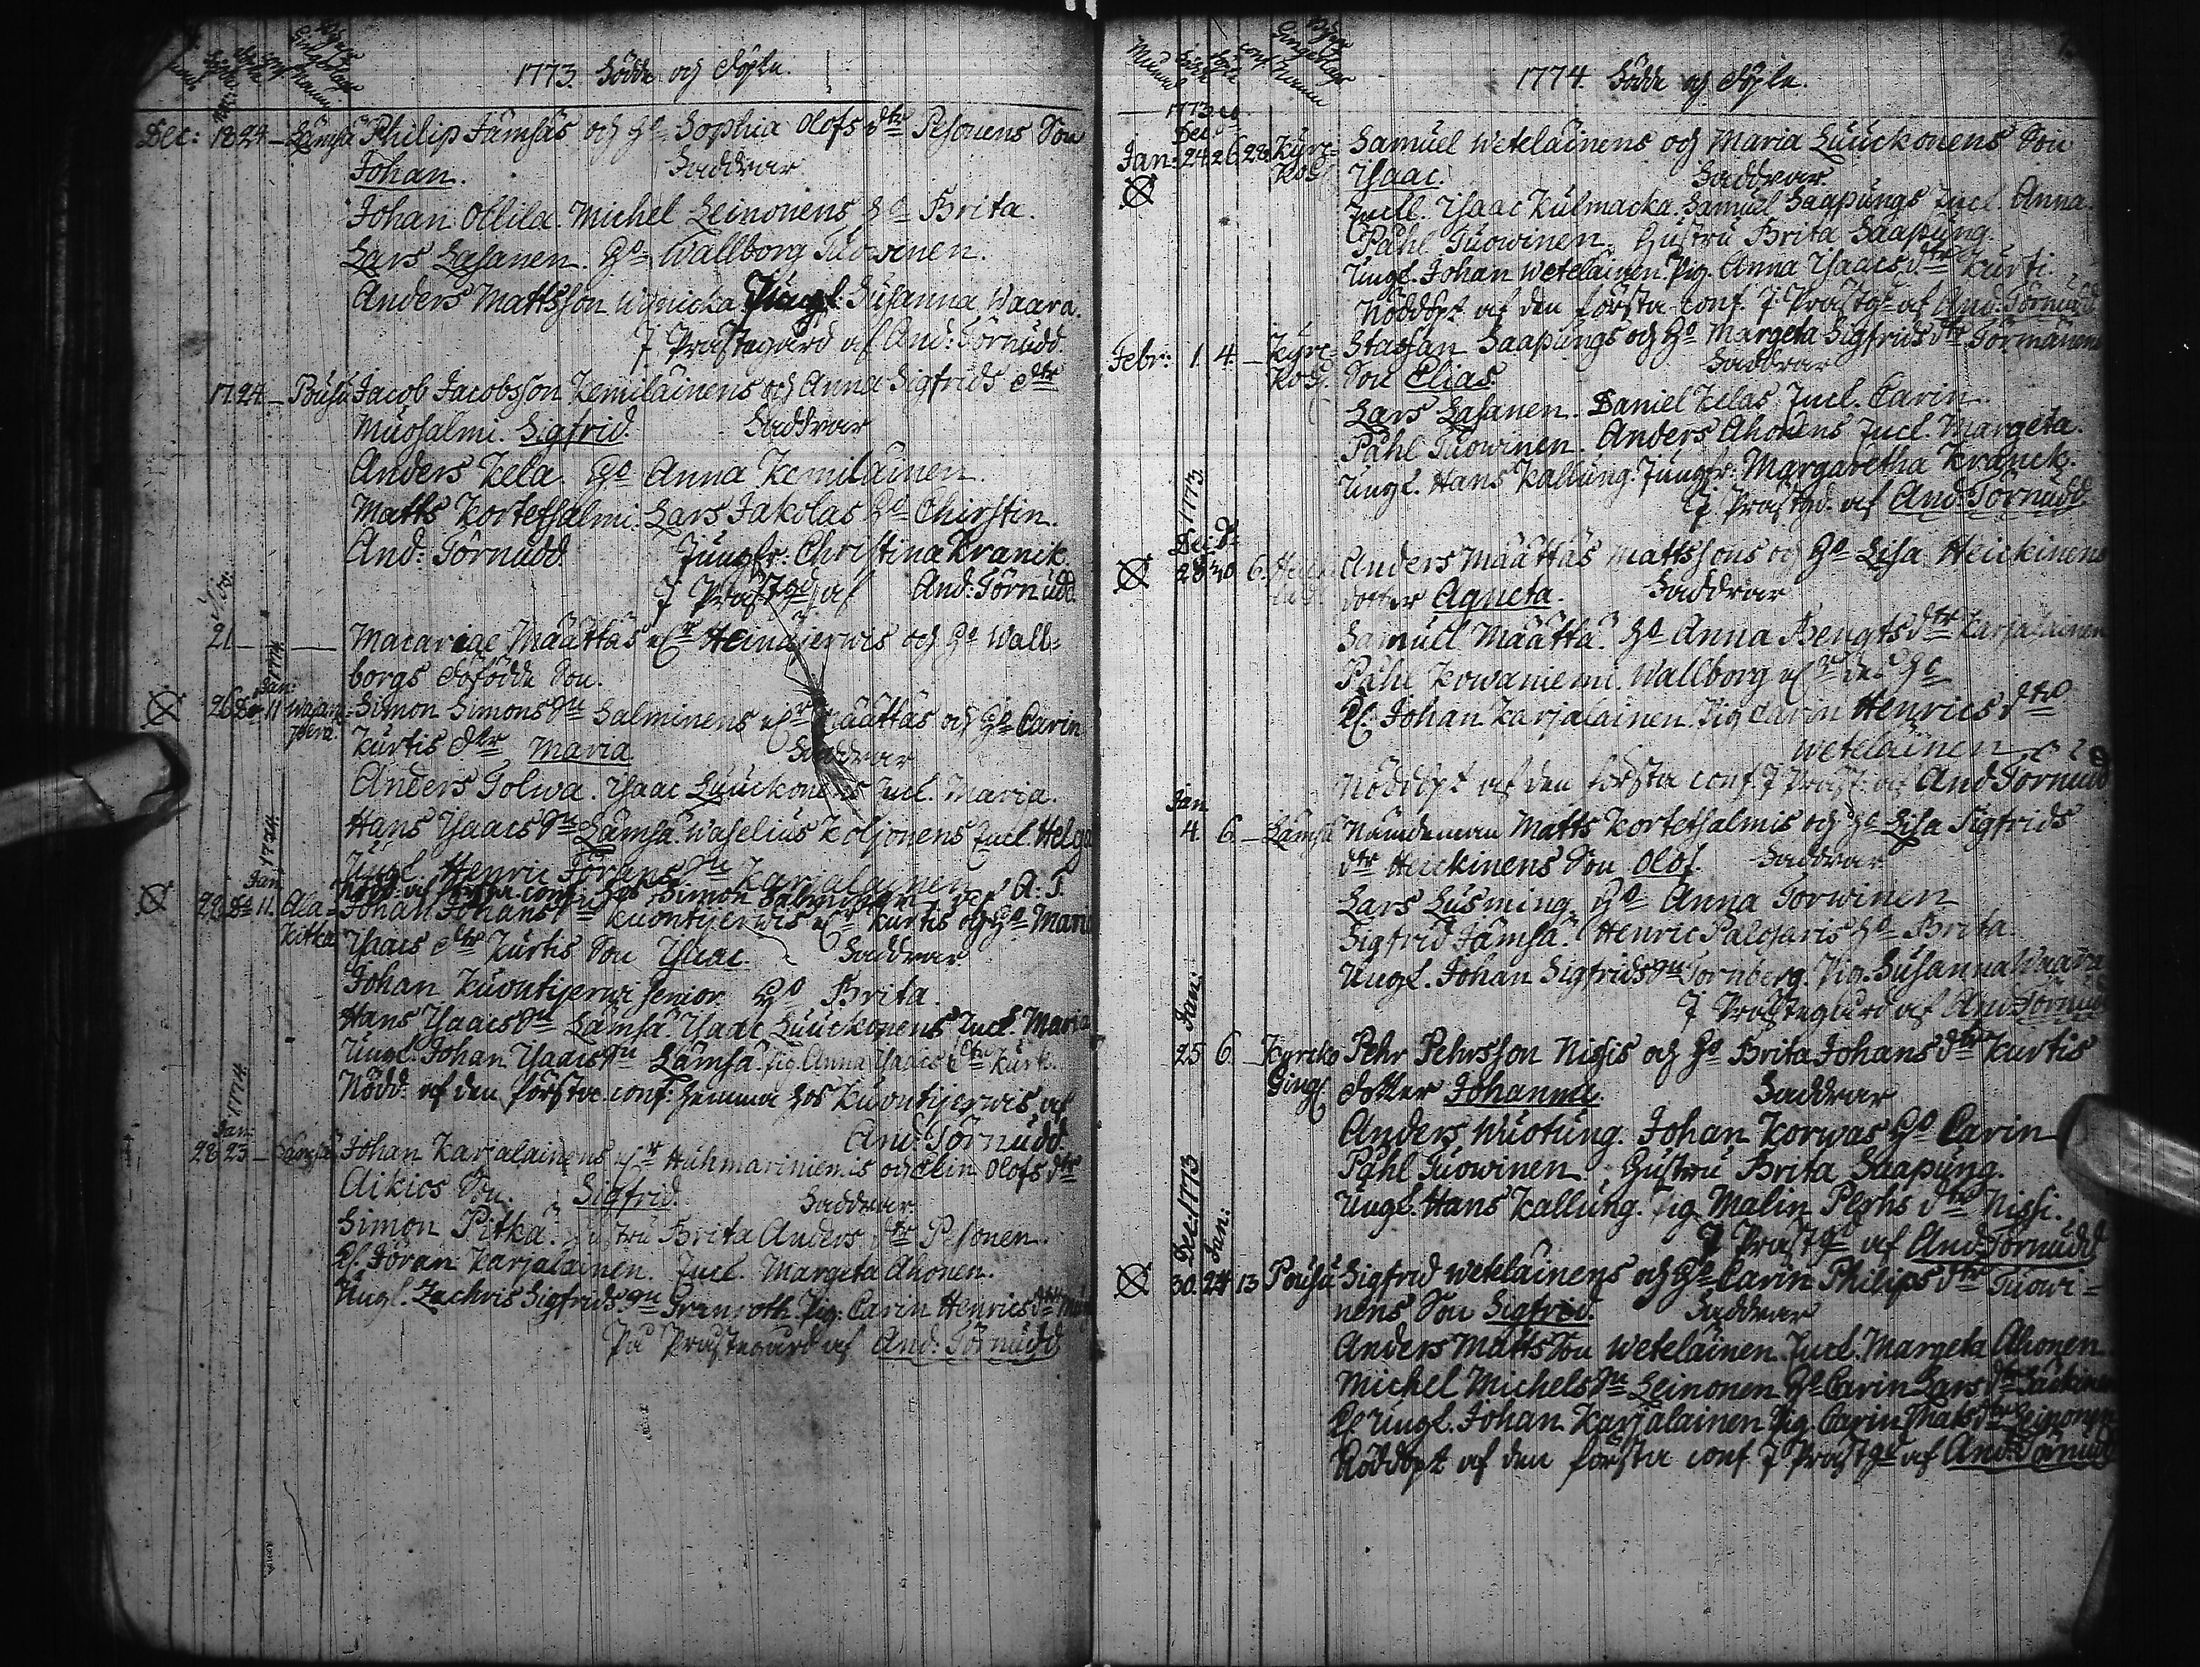 1773. Födde och Döpte.
Dec: 18 24 – Lämsä Philip Jämsäs och Ho Sophia Olofs dtr Pesonens Son
Johan. Faddrar
Johan Ollila. Michel Leinonens Ho Brita.
Lars Lasanen. Ho Wallborg Tuowinen.
Anders Mattsson Susanna Waara.
J Prästegård af And: Törnudd.
17. 24. – Pousu Jacob Jacobsson Kemiläinens och Anna Sigfrids dtr
Muosalmi. Sigfrid. Faddrar
Anders Kela. Ho Anna Kemiläinen.
Matts Kortesalmi. Lars Jakolas Ho Chirstin.
And: Törnudd. Jungfr: Christina Kranck.
J Prästgd af And: Törnudd.
Nov:
21 – Macarige Määttäs elr Heinäjerwis och Ho Wall-
borgs döfödde Son.
Jan: 1774
26 11 Simon Simons Sn Salminens elr Määttäs och Ho Carin
Kurtis dtr Maria. Faddrar
Anders Tolwa. Isaac Luuckonens Encl. Maria.
Hans Isaacs Sn Lämsä. Waselius Koljonens Encl. Helga
Ungl. Henric Jörans Sn Karjalainen
af första conf. hos Simon Salminen af A. T.
Jan 1774
22 11. Ala- Johan Johans Sn Kuontijerwis elr Kurtis och Ho Maria
Kitka Isaacs dtr Kurtis Son Isaac. Faddrar
Johan Kuontijerwi senior. Ho Brita.
Hans Isaacs Sn Lämsä. Isaac Luuckonens Encl. Maria
Ungl. Johan Isaacs Sn Lämsä. Pig. Anna Isaacs dtr Kurti.
Nödd: af den första conf: hemma hos Kuontijerwis, af
And: Törnudd.
Jan: 1774
28 23 – Lämsä Johan Karjalainens elr Huhmariniemis och Elin Olofs dtr
Aikios Son. Sigfrid. Faddrar.
Simon Pitkä. Hustru Brita Anders dtr Pesonen.
Jöran Karjalainen. Encl. Margeta Ahonen.
Ungl. Zachris Sigfrids Sn Granroth. Pig: Carin Henrics dtr
På Prästegård af And: Törnudd
1774. Födde och Döpte.
1773
Dec:
Jan: 24 26 28 Kyrc- Samuel Weteläinens och Maria Luuckonens Son
kos. Isaac. Faddrar.
Isaac Kulmacka. Samuel Saapungs Encl. Anna.
Påhl Tuowinen. Hustru Brita Saapung.
Ungl. Johan Weteläinen. Pig. Anna Isaacs dtr Kurti.
Nöddöpt af den första conf. J Prästgd af And: Törnudd.
Febr: 1. 4 – Kyrc- Staffan Saapungs och Ho Margeta Sigfrids dtr Törmänens
kos. Son Elias. Faddrar
Lars Lasanen. Daniel Kelas Encl. Carin.
Påhl Tuowinen. Anders Ahonens Encl. Margeta.
Ungl. Hans Kallung. Jungfr: Margaretha Kranck.
J Prästgd. af And: Törnudd
Dec: 1773.
28 30 6. Anders Määttäs Mattssons och Ho Lisa Heickinens
dotter Agneta. Faddrar
Samuel Määttä. Ho Anna Bengts dtr Karjalainen
Påhl Kowaniemi. Wallborg
Johan Karjalainen. Pig Carin Henrics dtr
Weteläinen
Nöddöpt af den första conf. J Präst: af And: Törnudd
Jan
4. 6. – Lämsä Nämdeman Matts Kortesalmis och Ho Lisa Sigfrids
dtr Heickinens Son Olof. Faddrar
Lars Lusming. Ho Anna Torwinen
Sigfrid Jämsä. Henric Palosaris Ho Brita.
Ungl. Johan Sigfrids Sn Tornberg. Pig. Susanna Waara
J Prästegård af And: Törnudd
Jan:
25 6. – Kyrcko Pehr Pehrsson Nissis och Ho Brita Johans dtr Kurtis
Ging. dotter Johanna. Faddrar
Anders Wuotung. Johan Korwas Ho Carin
Påhl Tuowinen. Hustru Brita Saapung.
Ungl. Hans Kallung. Pig. Malin Pehrs dtr Nissi.
J Prästgd af And: Törnudd
Dec: 1773
Jan:
30. 24 13 Pousu Sigfrid Weteläinens och Ho Carin Philips dtr Tuowi-
nens Son Sigfrid. Faddrar
Anders Matts Son Weteläinen. Encl. Margeta Ahonen.
Michel Michels Sn Leinonen. Ho Carin Lars dtr
Ungl. Johan Karjalainen. Pig. Carin Mats dtr Leinonen
Nöddöpt af den första conf. J Prästgd af And: Törnudd